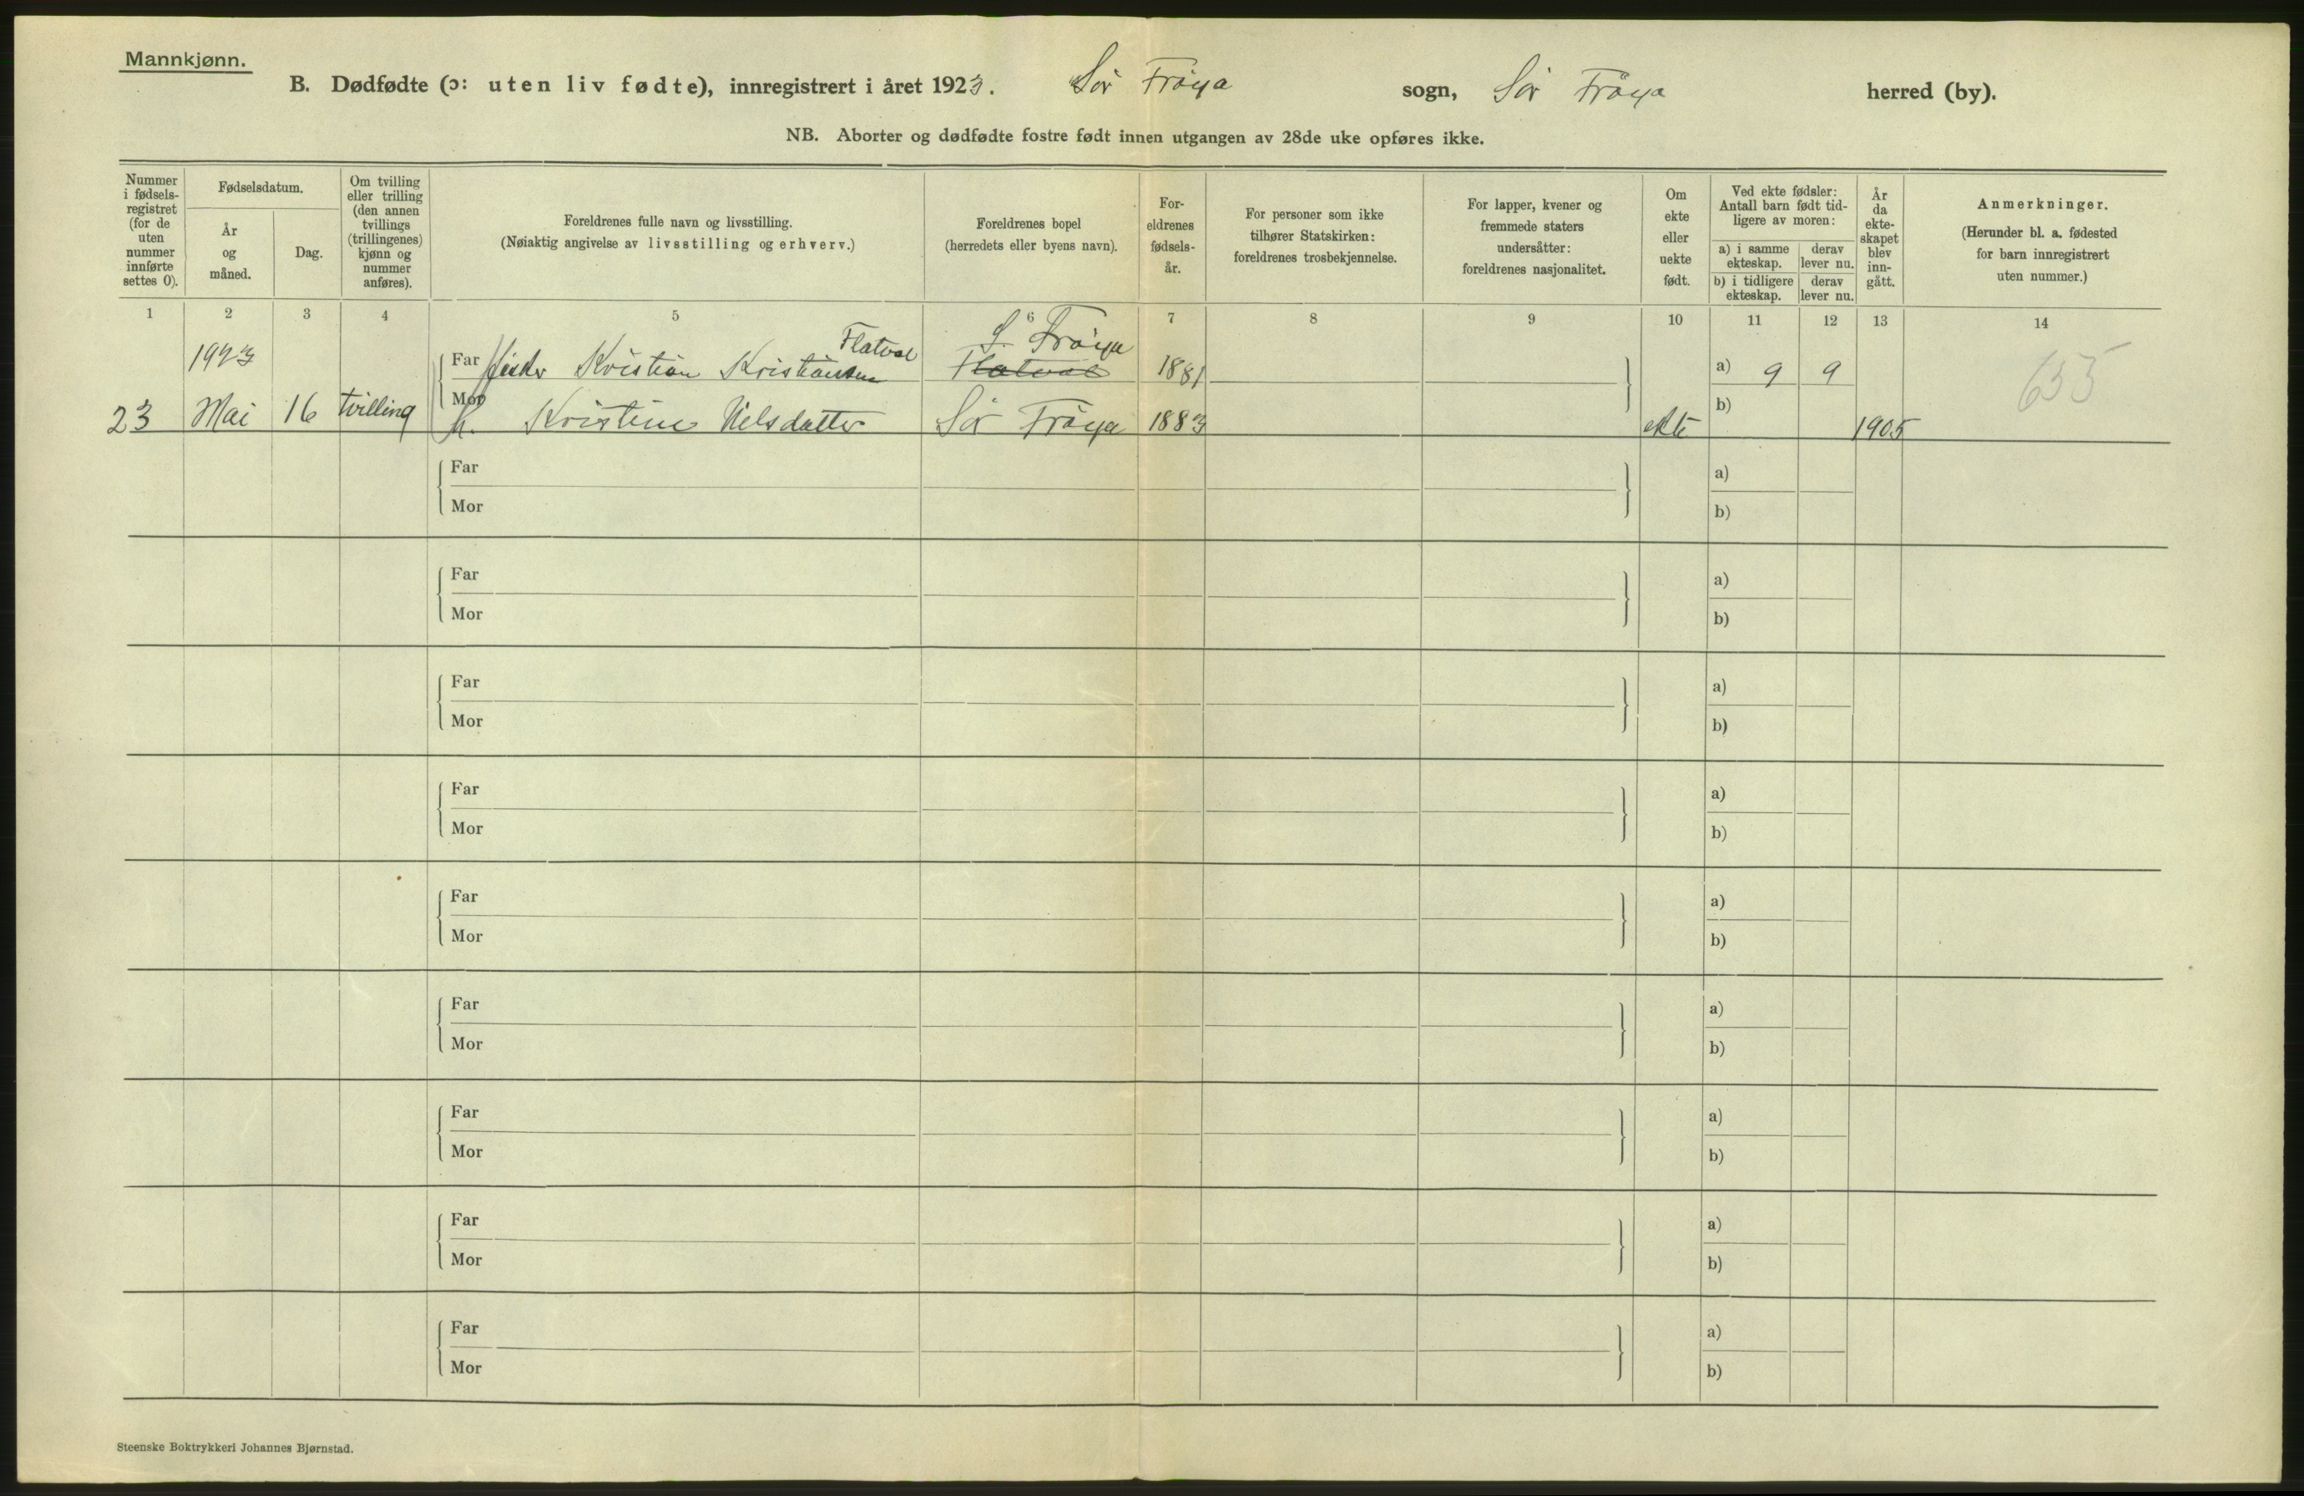 Mannkjønn.
B. Dødfødte (ɔ: uten liv fødte), innregistrert i året 1923. Sör Fröya sogn, Sör Fröya herred (by).
NB. Aborter og dødfødte fostre født innen utgangen av 28de uke opføres ikke.
Nummer i fødsels-registret (for de uten nummer innførte settes 0).
Fødselsdatum.
År og måned.
Dag.
Om tvilling eller trilling (den annen tvillings (trillingenes) kjønn og nummer anføres).
Foreldrenes fulle navn og livsstilling.
(Nøiaktig angivelse av livsstilling og erhverv.)
Foreldrenes bopel
(herredets eller byens navn).
For-eldrenes fødsels-år.
For personer som ikke tilhører Statskirken: foreldrenes trosbekjennelse.
For lapper, kvener og fremmede staters undersåtter: foreldrenes nasjonalitet.
Om ekte eller uekte født.
Ved ekte fødsler: Antall barn født tid-ligere av moren:
a) i samme ekteskap.
derav lever nu.
b) i tidligere ekteskap.
derav lever nu.
År da ekte-skapet blev inn-gått.
Anmerkninger.
(Herunder bl. a. fødested for barn innregistrert uten nummer.)
1 2 3 4 5 6 7 8 9 10 11 12 13 14
Flatval S. Fröya
1923 Far fisker Kristian Kristiansen Flatval 1881 a) 9 9 655
23 Mai 16 tvilling Mor h. Kristine Nielsdatter Sör Fröya 1883 ekte b) 1905
Far a)
Mor b)
Far a)
Mor b)
Far a)
Mor b)
Far a)
Mor b)
Far a)
Mor b)
Far a)
Mor b)
Far a)
Mor b)
Far a)
Mor b)
Far a)
Mor b)
Steenske Boktrykkeri Johannes Bjørnstad.